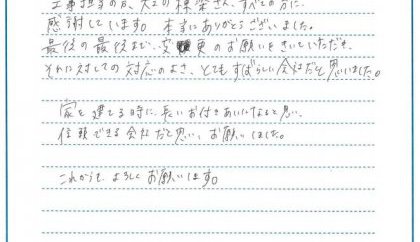 工事担当の方、大工の棟梁さん、すべての方に
感謝しています。本当にありがとうございました。
最後の最後まで、変更のお願いをきいていただき、
それに対しての対応のよさ、とてもすばらしい会社だと思いました。
家を建てる時に、長いお付きあいになると思い、
信頼できる会社だと思い、お願いしました。
これからも、よろしくお願いします。